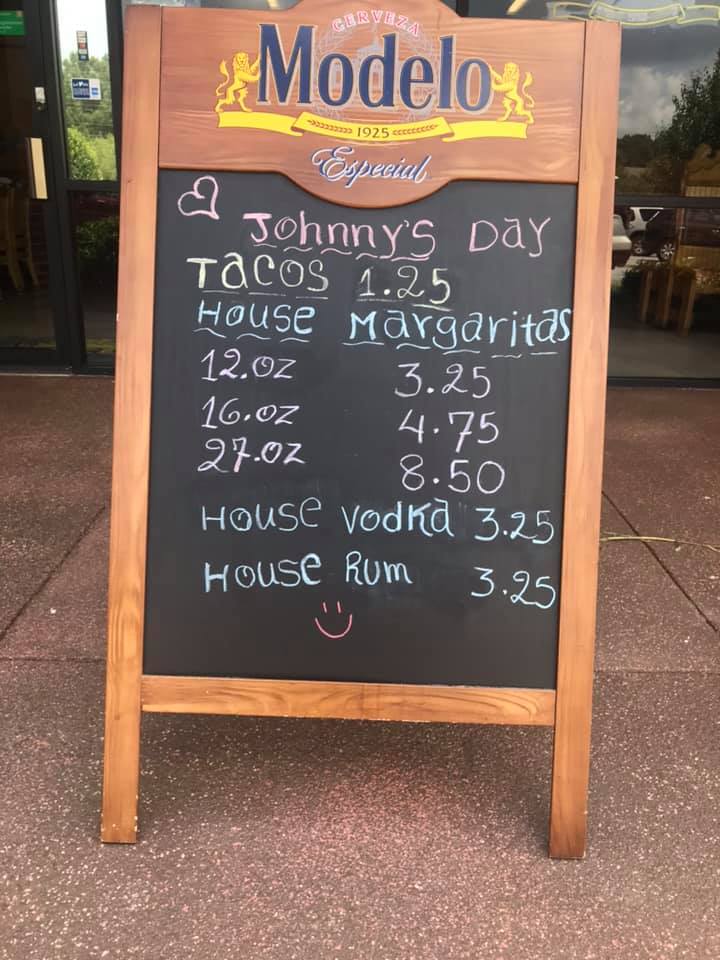 CERVEZA
Modelo
1925
Especial
Johnny's Day
Tacos 1.25
House Margaritas
12.oz 3.25
16.oz 4.75
27.oz 8.50
House Vodka 3.25
House Rum 3.25